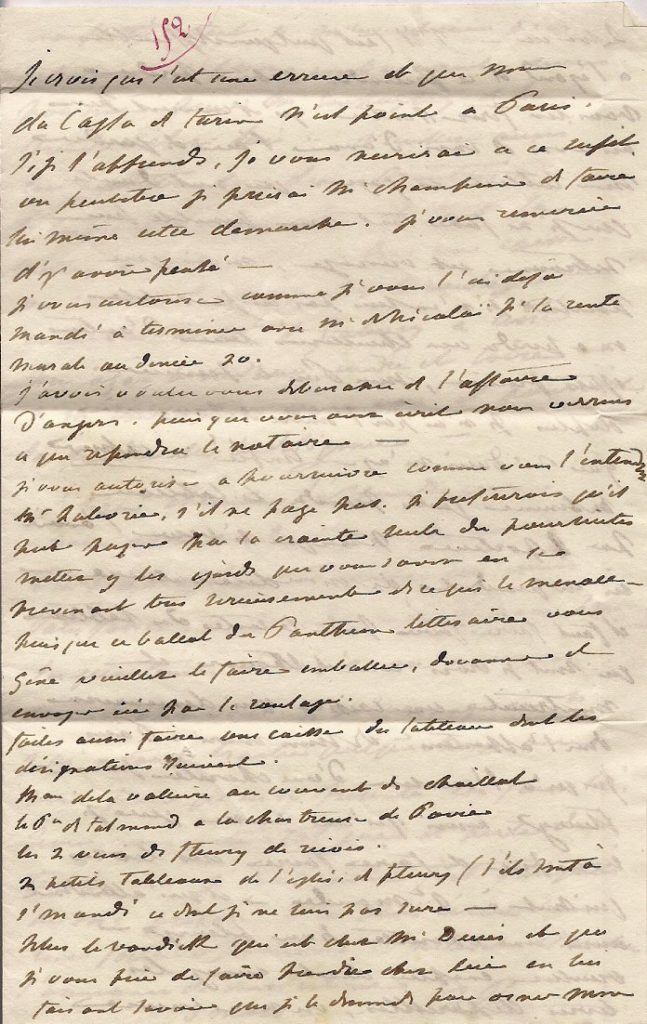 152
Je crois que c'est une erreur et que Mme
du Cayla et turin n'est point a Paris.
Si je l'apprends, je vous ecrirai a ce sujet
ou peutetre je prierai Mr champion de faire
lui même cette demarche. je vous remercie
d'y avoir pensé —
je vous autorise comme je vous l'ai deja
mandé à terminer avec Mr Nicolaï si la rente
au denier 20.
j'avois voulu vous debarasser de l'affaire
D'angers. puisque vous avez écrit nous verrons
ce que repondra le notaire —
je vous autorise a poursuivre comme vous l'entendrez
Mr, s'il ne paye pas. je prefererois qu'il
put payer par la crainte seule des poursuites
mettez y les égards que vous savez en le
prevenant tres serieusement de ce qui le menace —
puisque ce ballot du Pantheon litteraire vous
gêne veuillez le faire emballer, douanner et
envoyer ici par le roulage.
faites aussi faire une caisse des tableaux dont les
désignations suivent.
Mme de la valliere au couvent de chaillot
le Pce de talmond a la chartreuse de Pavie
les 2 vues de fleury de
2 petits tableaux de l'eglise de fleury (s'ils sont à
St mandé ce dont je ne suis pas sure —
plus le vandick qui est chez Mr Denis et que
je vous prie de faire prendre chez lui en lui
faisant savoir que je le demande pour orner mon